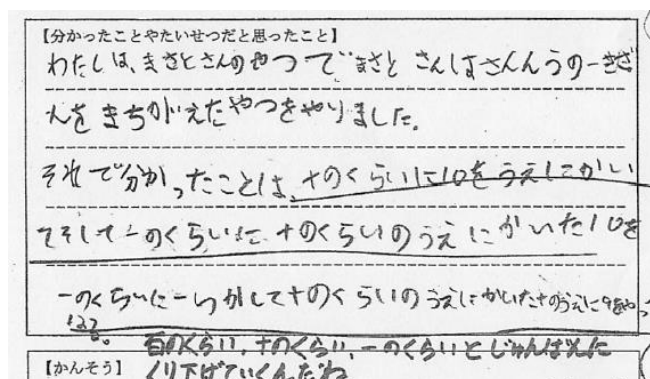 【分かったことやたいせつだと思ったこと】
わたしは、まさとさんのやつでまさとさんはさんんうの一きざ
んをまちがえたやつをやりました。
それで分かったことは、十のくらいに10をうえにかい
てそして一のくらいに、十のくらいのうえにかいた10を
一のくらいに一つかして十のくらいのうえにかいた十のうえに9をやっ
百のくらい、十のくらい、一のくらいとじゅんばんに
くり下げていくんだね
【かんそう】